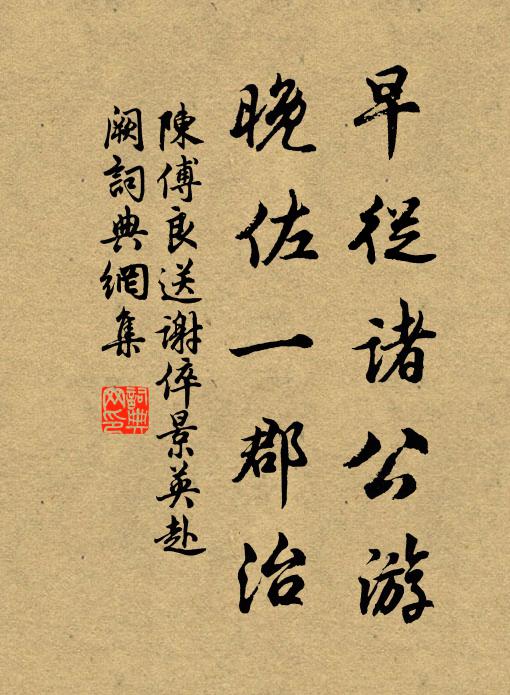 早從諸公游
晚佐一郡治
陳傅良送謝倅景英赴
闕詞典網集
詞典
网印